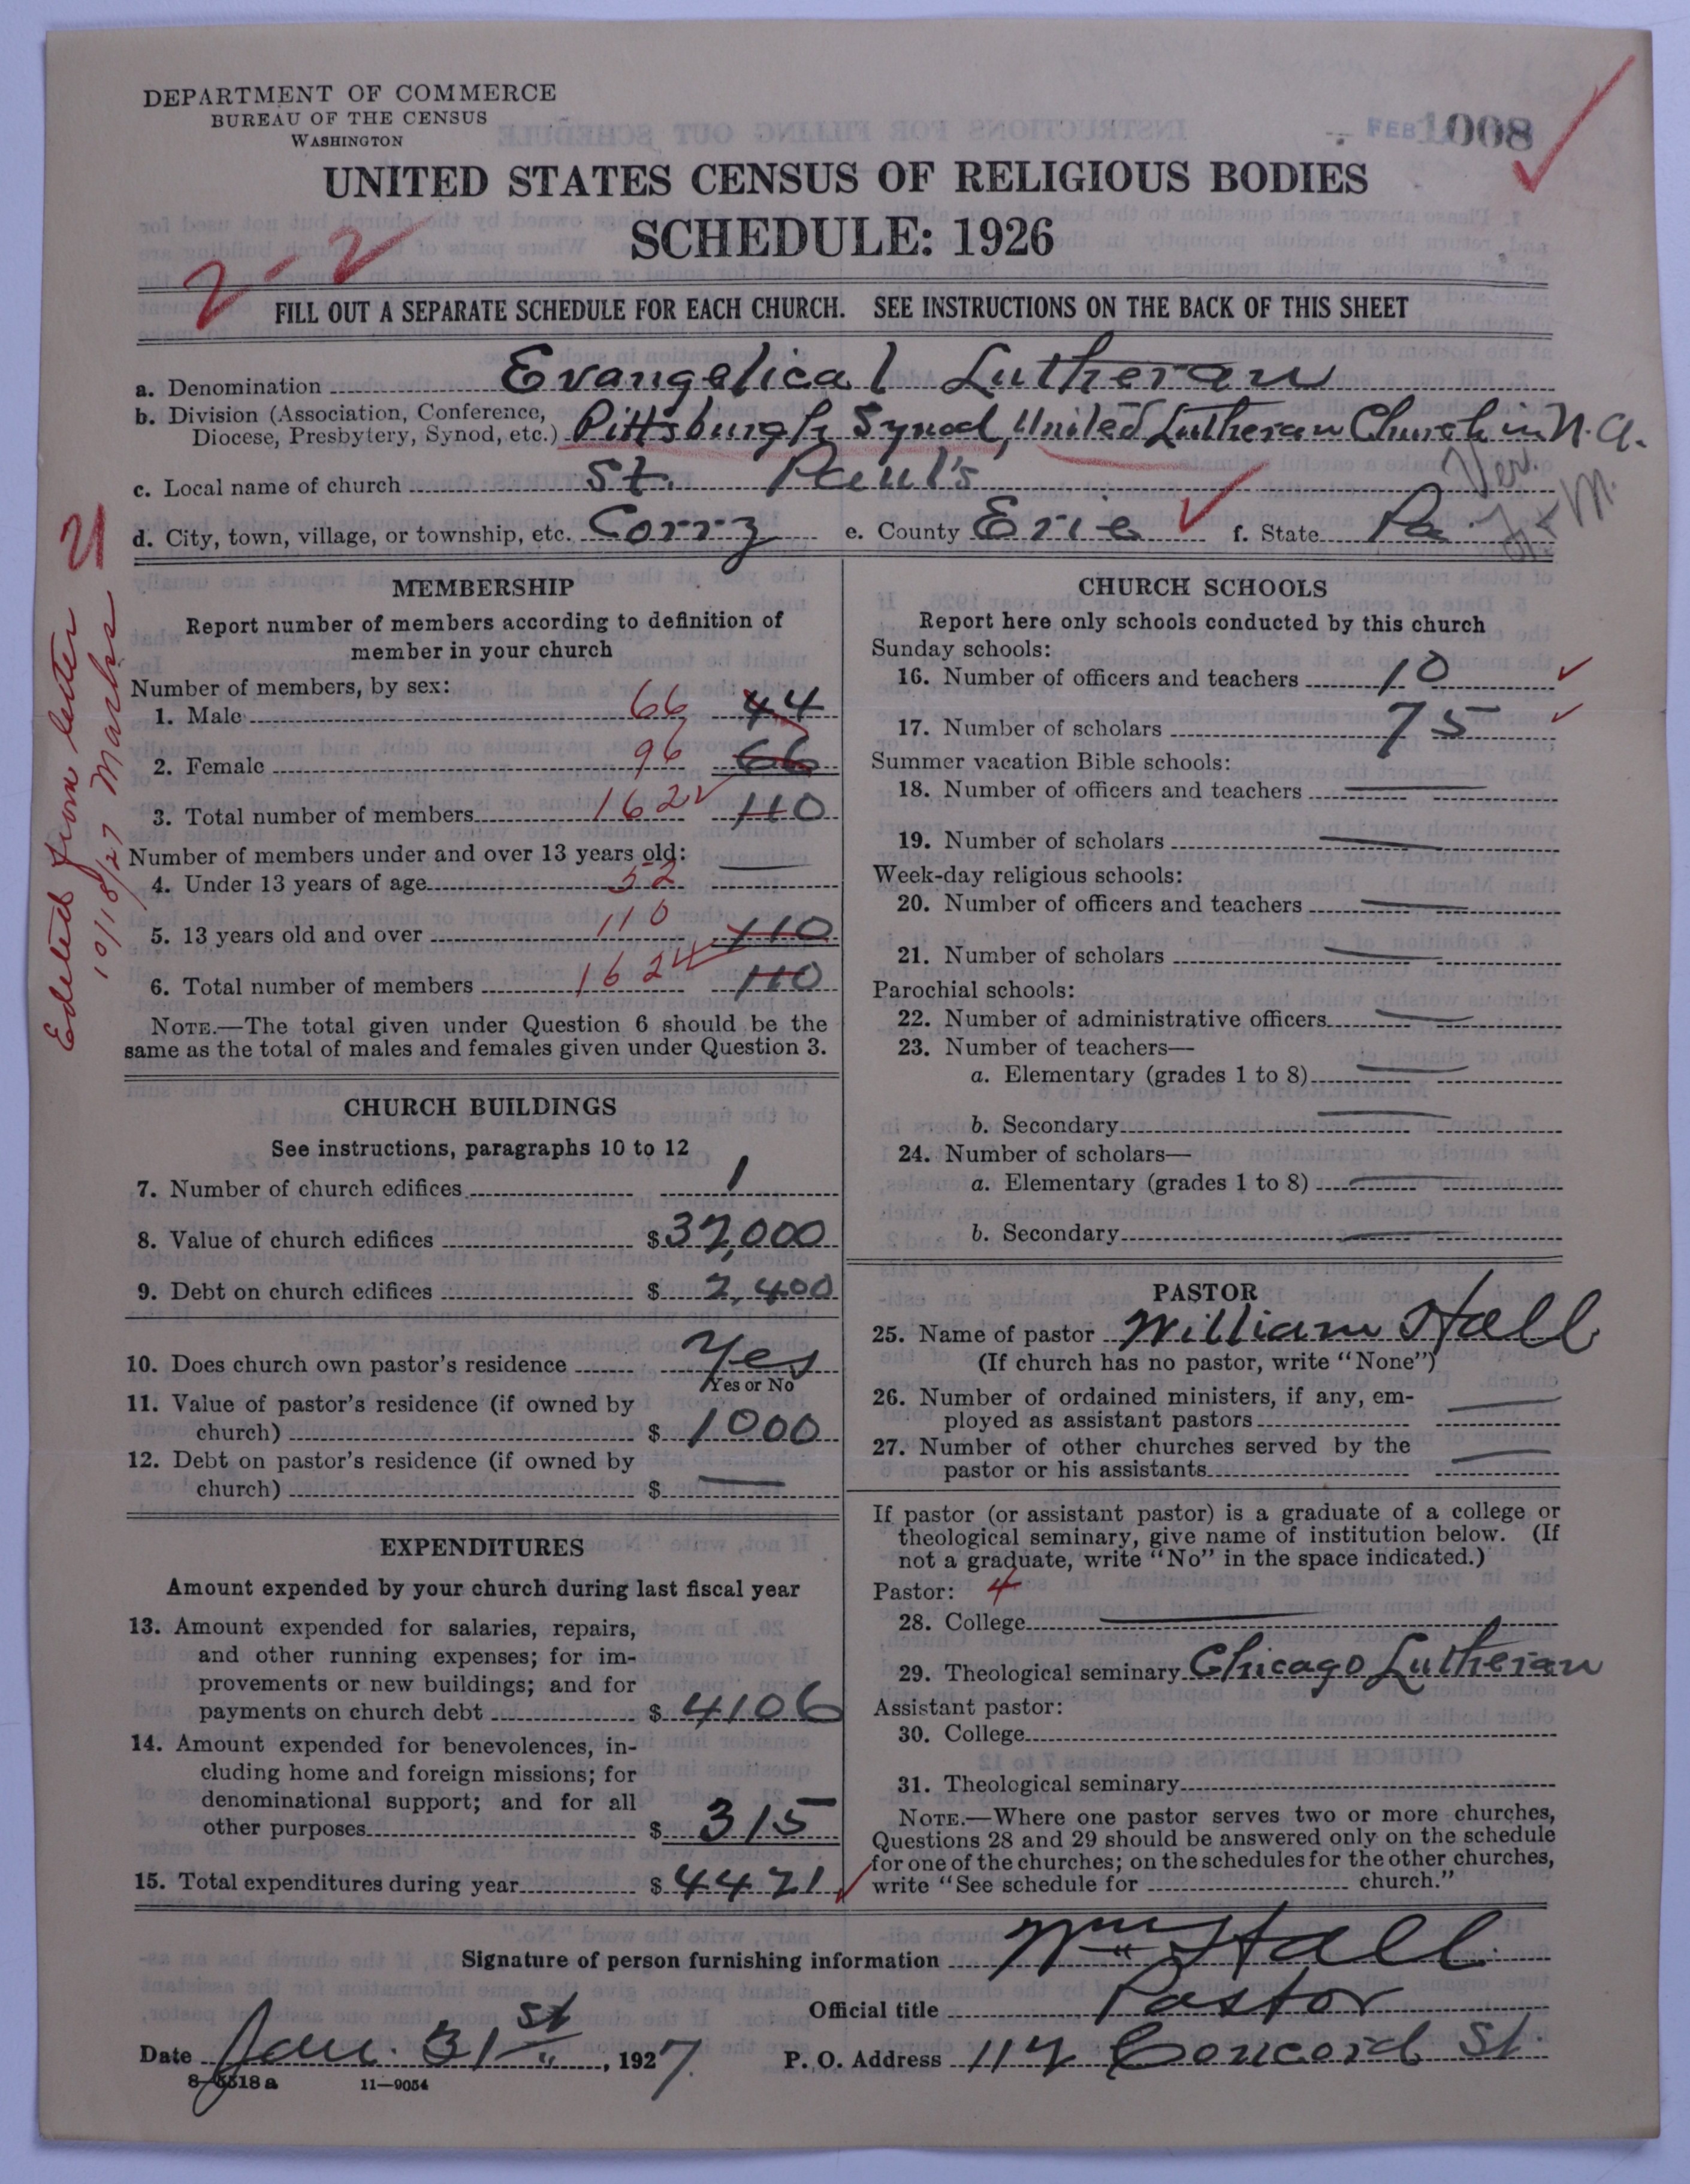 DEPARTMENT OF COMMERCE
BUREAU OF THE CENSUS
WASHINGTON
FEB 1008
UNITED STATES CENSUS OF RELIGIOUS BODIES
SCHEDULE: 1926
2-2
FILL OUT A SEPARATE SCHEDULE FOR EACH CHURCH. SEE INSTRUCTIONS ON THE BACK OF THIS SHEET
a. Denomination Evangelical Lutheran
b. Division (Association, Conference,
Diocese, Presbytery, Synod, etc.) Pittsburgh Synod, United Lutheran Church in N.A.
c. Local name of church St. Paul's Ver.
d. City, town, village, or township, etc. Corry e. County Erie f. State Pa
Edited from letter
10/18/27 Marks
MEMBERSHIP
Report number of members according to definition of
member in your church
Number of members, by sex:
1. Male 66 44
2. Female 96 66
3. Total number of members 162 110
Number of members under and over 13 years old:
4. Under 13 years of age 52
5. 13 years old and over 110 110
6. Total number of members 162 110
NOTE.—The total given under Question 6 should be the
same as the total of males and females given under Question 3.
CHURCH BUILDINGS
See instructions, paragraphs 10 to 12
7. Number of church edifices 1
8. Value of church edifices $ 37,000
9. Debt on church edifices $ 2,400
10. Does church own pastor's residence Yes
Yes or No
11. Value of pastor's residence (if owned by
church) $ 1000
12. Debt on pastor's residence (if owned by
church) $ —
EXPENDITURES
Amount expended by your church during last fiscal year
13. Amount expended for salaries, repairs,
and other running expenses; for im-
provements or new buildings; and for
payments on church debt $ 4106
14. Amount expended for benevolences, in-
cluding home and foreign missions; for
denominational support; and for all
other purposes $ 315
15. Total expenditures during year $ 4421
CHURCH SCHOOLS
Report here only schools conducted by this church
Sunday schools:
16. Number of officers and teachers 10
17. Number of scholars 75
Summer vacation Bible schools:
18. Number of officers and teachers —
19. Number of scholars —
Week-day religious schools:
20. Number of officers and teachers —
21. Number of scholars —
Parochial schools:
22. Number of administrative officers —
23. Number of teachers—
a. Elementary (grades 1 to 8) —
b. Secondary —
24. Number of scholars—
a. Elementary (grades 1 to 8) —
b. Secondary —
PASTOR
25. Name of pastor William Hall
(If church has no pastor, write "None")
26. Number of ordained ministers, if any, em-
ployed as assistant pastors —
27. Number of other churches served by the
pastor or his assistants —
If pastor (or assistant pastor) is a graduate of a college or
theological seminary, give name of institution below. (If
not a graduate, write "No" in the space indicated.)
Pastor: 4
28. College —
29. Theological seminary Chicago Lutheran
Assistant pastor:
30. College
31. Theological seminary
NOTE.—Where one pastor serves two or more churches,
Questions 28 and 29 should be answered only on the schedule
for one of the churches; on the schedules for the other churches,
write "See schedule for church."
Signature of person furnishing information Wm Hall
Official title Pastor
Date Jan. 31st, 1927 P. O. Address 117 Concord St
8-5518a 11-9054